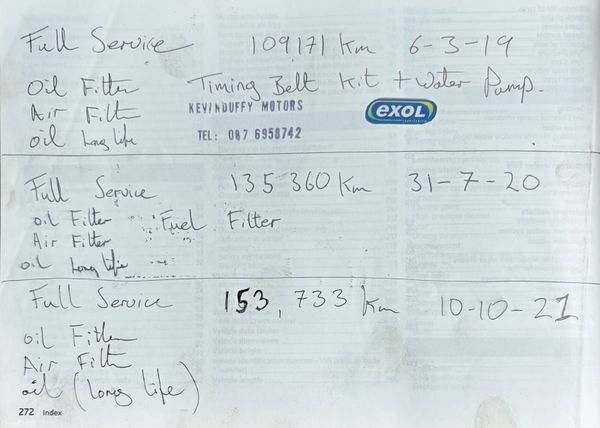 Full Service 109171 Km 6-3-19
Oil Filter Timing Belt Kit + Water Pump.
Air Filt KEVIN DUFFY MOTORS EXOL
oil Long life TEL: 087 6958742
Full Service 135 360 Km 31-7-20
oil Filter Fuel Filter
Air Filter
oil Long life
Full Service 153,733 km 10-10-21
oil Filter
Air Filt
oil (Long life)
272 Index